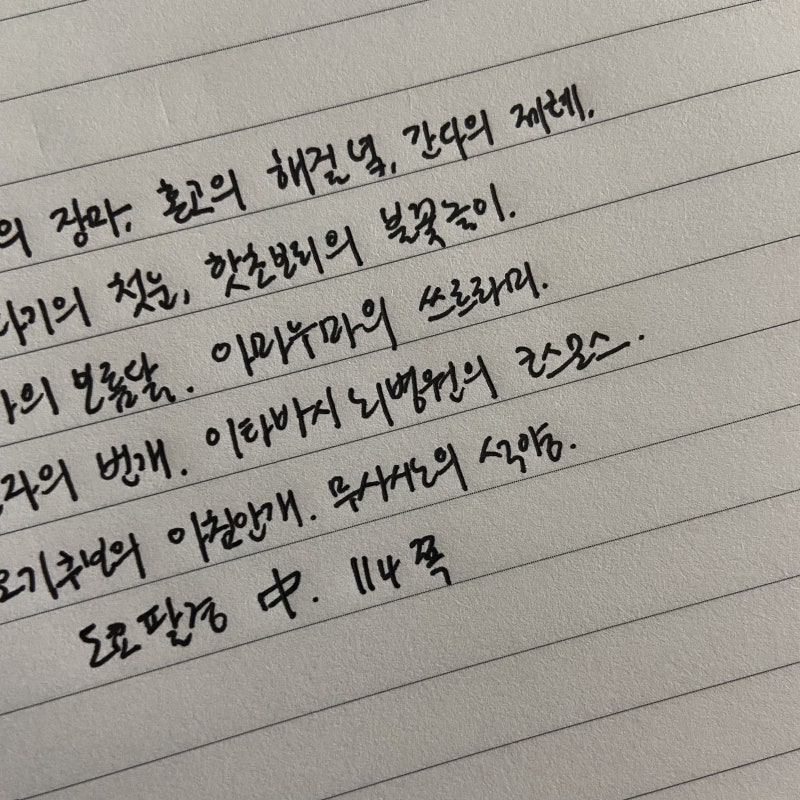 의 장마, 혼고의 해질녘, 간다의 제례,
기의 첫눈, 핫초보리의 불꽃놀이.
의 보름달. 아마누마의 쓰르라미.
자의 번개. 이타바시 뇌병원의 코스모스.
요기추보의 아침안개. 무사시노의 석양.
도쿄 팔경 中. 114쪽